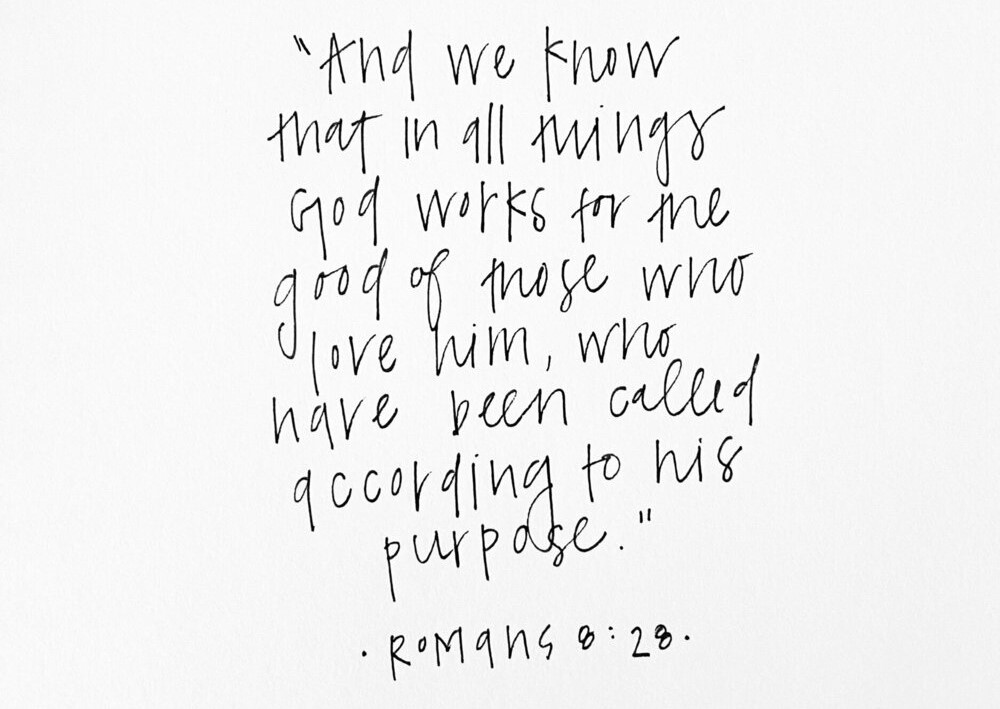 "And we know
that in all things
God works for the
good of those who
love him, who
have been called
according to his
purpose."
· ROMANS 8:28 ·